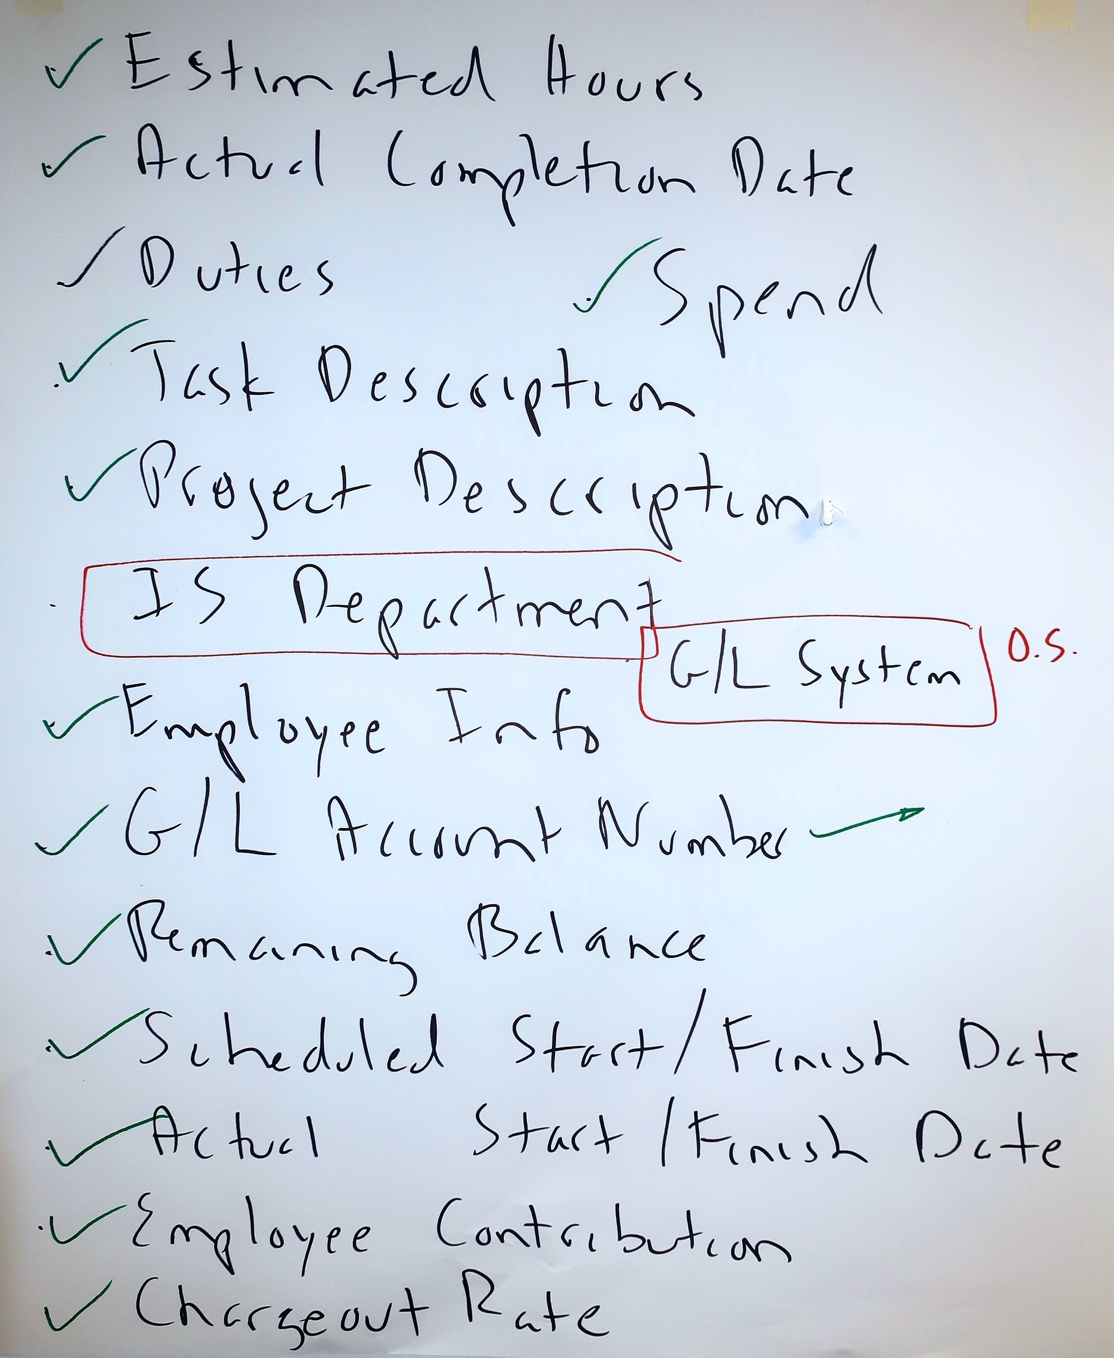 ✓ Estimated Hours
✓ Actual Completion Date
✓ Duties ✓ Spend
✓ Task Description
✓ Project Description
IS Department
G/L System O.S.
✓ Employee Info
✓ G/L Account Number →
✓ Remaining Balance
✓ Scheduled Start/Finish Date
✓ Actual Start/Finish Date
✓ Employee Contribution
✓ Chargeout Rate